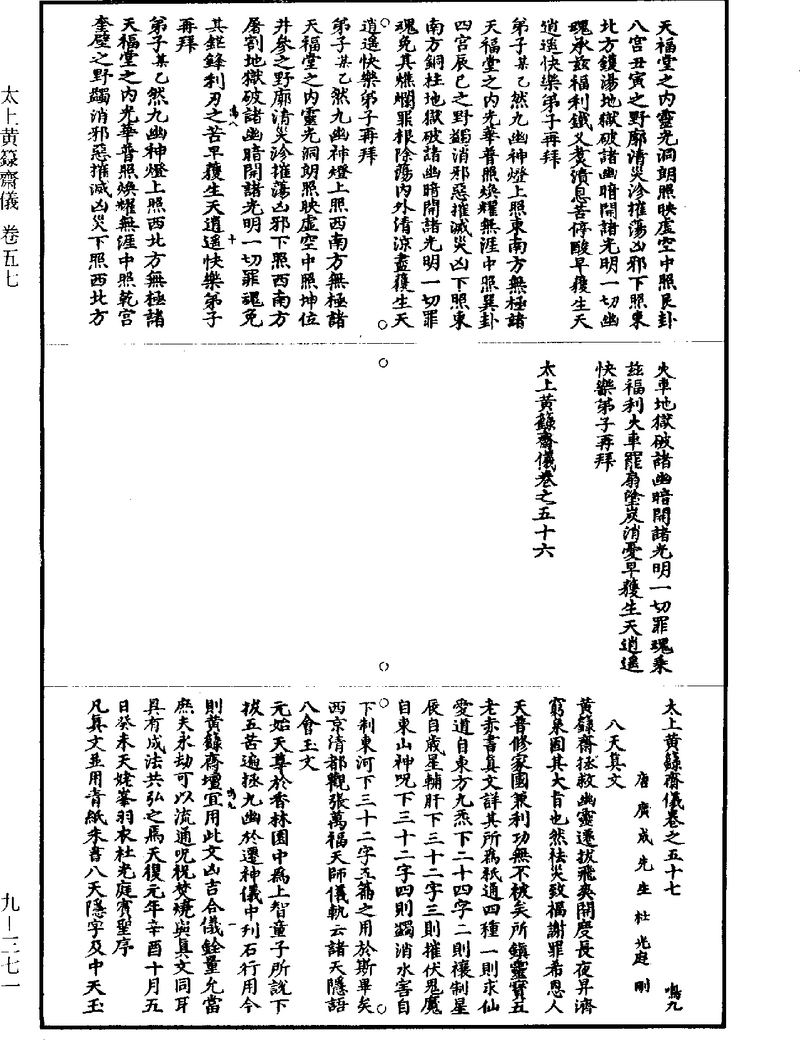 太上黃籙齋儀 卷五七
九—三七一
天福堂之内靈光洞朗照映虛空中照艮卦
八宮丑寅之野廓清災沴摧蕩凶邪下照東
北方鑊湯地獄破諸幽暗開諸光明一切幽
魂承茲福利鐵义䒱潰息苦停酸早獲生天
逍遥快樂弟子再拜
弟子某乙然九幽神燈上照東南方無極諸
天福堂之内光華普照煥耀無涯中照巽卦
四宮辰巳之野蠲消邪惡摧滅災凶下照東
南方銅柱地獄破諸幽暗開諸光明一切罪
魂免其燋爛罪根除蕩内外清涼盡獲生天
逍遥快樂弟子再拜
弟子某乙然九幽神燈上照西南方無極諸
天福堂之内靈光洞朗照映虛空中照坤位
井參之野廓清災沴摧蕩凶邪下照西南方
屠割地獄破諸幽暗開諸光明一切罪魂免
其鋩鋒利刃之苦早獲生天逍遥快樂弟子
再拜
弟子某乙然九幽神燈上照西北方無極諸
天福堂之内光華普照煥耀無涯中照乾宮
奎壁之野蠲消邪惡摧滅凶災下照西北方
火車地獄破諸幽暗開諸光明一切罪魂乘
茲福利火車罷扇塗炭消憂早獲生天逍遥
快樂弟子再拜
太上黃籙齋儀卷之五十六
太上黃籙齋儀卷之五十七 鳴九
唐廣成先生杜光庭刪
八天真文
黃籙齋拯救幽靈遷拔飛爽開慶長夜昇濟
窮泉固其大旨也然祛災致福謝罪希恩人
天普修家國兼利功無不被矣所鎮靈寶五
老赤書真文詳其所為祇通四種一則求仙
愛道自東方九炁下二十四字二則禳制星
辰自歲星輔肝下三十二字三則摧伏鬼魔
自東山神呪下三十二字四則蠲消水害自
下制東河下三十二字五篇之用於斯畢矣
西京清都觀張萬福天師儀軌云諸天隱語
八會玉文
元始天尊於香林園中為上智童子所說下
拔五苦遍拯九幽於遷神儀中刊石行用今
則黃籙齋壇宜用此文凶吉合儀銓量允當
庶夫永劫可以流通呪祝焚燒與真文同耳
具有成法共弘之焉天復元年辛酉十月五
日癸未天姥峯羽衣杜光庭賓聖序
凡真文並用青紙朱書八天隱字及中天玉